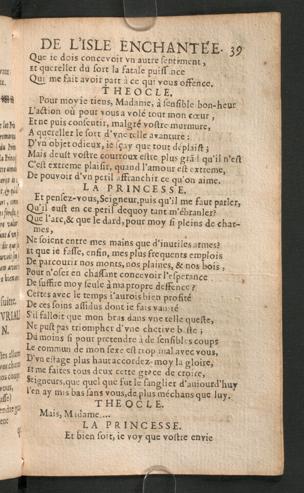 DE L'ISLE ENCHANTÉE. 39
Que ie dois concevoir vn autre sentiment,
Et quereller du sort la fatale puissance
Qui me fait avoir part à ce qui vous offence.
THEOCLE.
Pour moy ie tiens, Madame, à sensible bon-heur
L'action où pour vous a volé tout mon cœur,
Et ne puis consentir, malgré vostre murmure,
A quereller le sort d'vne telle avanture:
D'vn objet odieux, ie sçay que tout déplaist;
Mais deust vostre courroux estre plus grãd qu'il n'est
C'est extréme plaisir, quand l'amour est extréme,
De pouvoir d'vn peril affranchir ce qu'on aime.
LA PRINCESSE.
Et pensez-vous, Seigneur, puis qu'il me faut parler,
Qu'il eust en ce peril dequoy tant m'ébranler?
Que l'arc, & que le dard, pour moy si pleins de char-
mes,
Ne soient entre mes mains que d'inutiles armes?
Et que ie fasse, enfin, mes plus frequens emplois
De parcourir nos monts, nos plaines, & nos bois,
Pour n'oser en chassant concevoir l'esperance
De suffire moy seule à ma propre deffence?
Certes avec le temps i'aurois bien profité
De ces soins assidus dont ie fais vanité
S'il falloit que mon bras dans vne telle queste,
Ne pust pas triompher d'vne chetive beste;
Du moins si pour pretendre à de sensibles coups
Le commun de mon sexe est trop mal avec vous,
D'vn estage plus haut accordez-moy la gloire,
Et me faites tous deux cette grace de croire,
Seigneurs, que quel que fut le sanglier d'auiourd'huy
I'en ay mis bas sans vous, de plus méchans que luy.
THEOCLE.
Mais, Madame....
LA PRINCESSE.
Et bien soit, ie voy que vostre envie